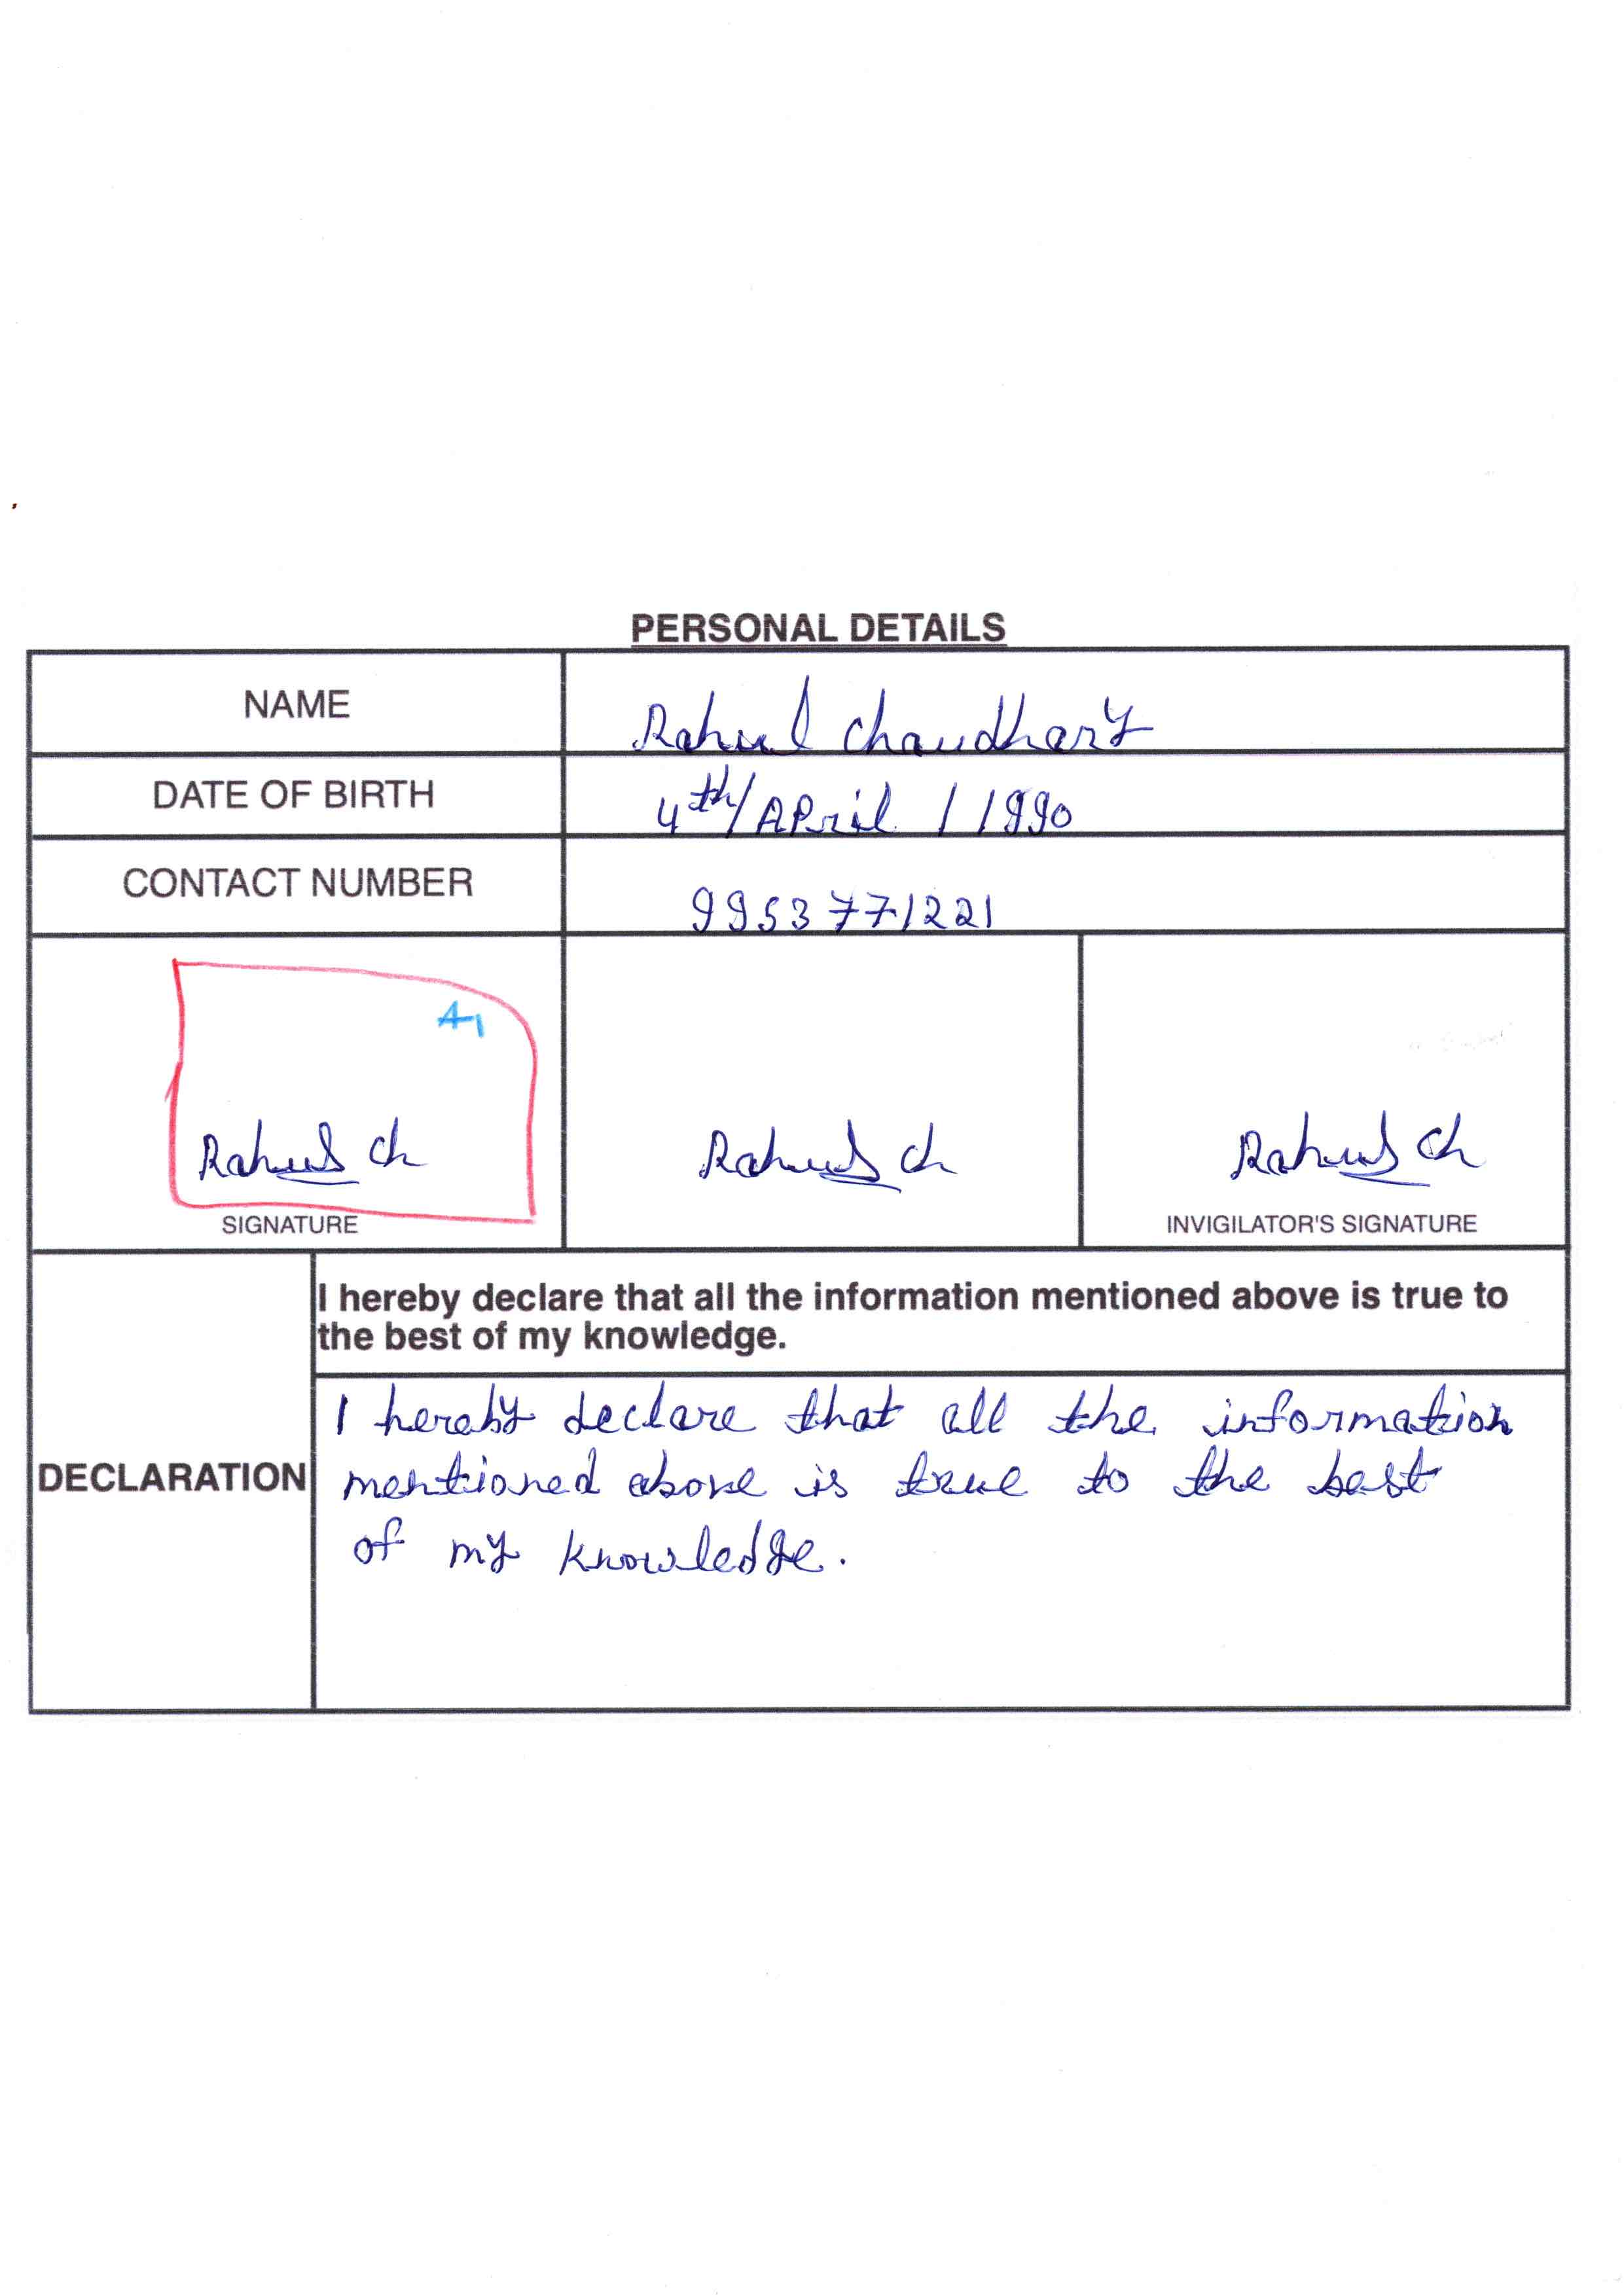 PERSONAL DETAILS
NAME Rahul Chaudhary
DATE OF BIRTH 4th/April / 1990
CONTACT NUMBER 9953771221
A1
Rahul Ch Rahul Ch Rahul Ch
SIGNATURE INVIGILATOR'S SIGNATURE
I hereby declare that all the information mentioned above is true to
the best of my knowledge.
I hereby declare that all the information
DECLARATION mentioned above is true to the best
of my knowledge.